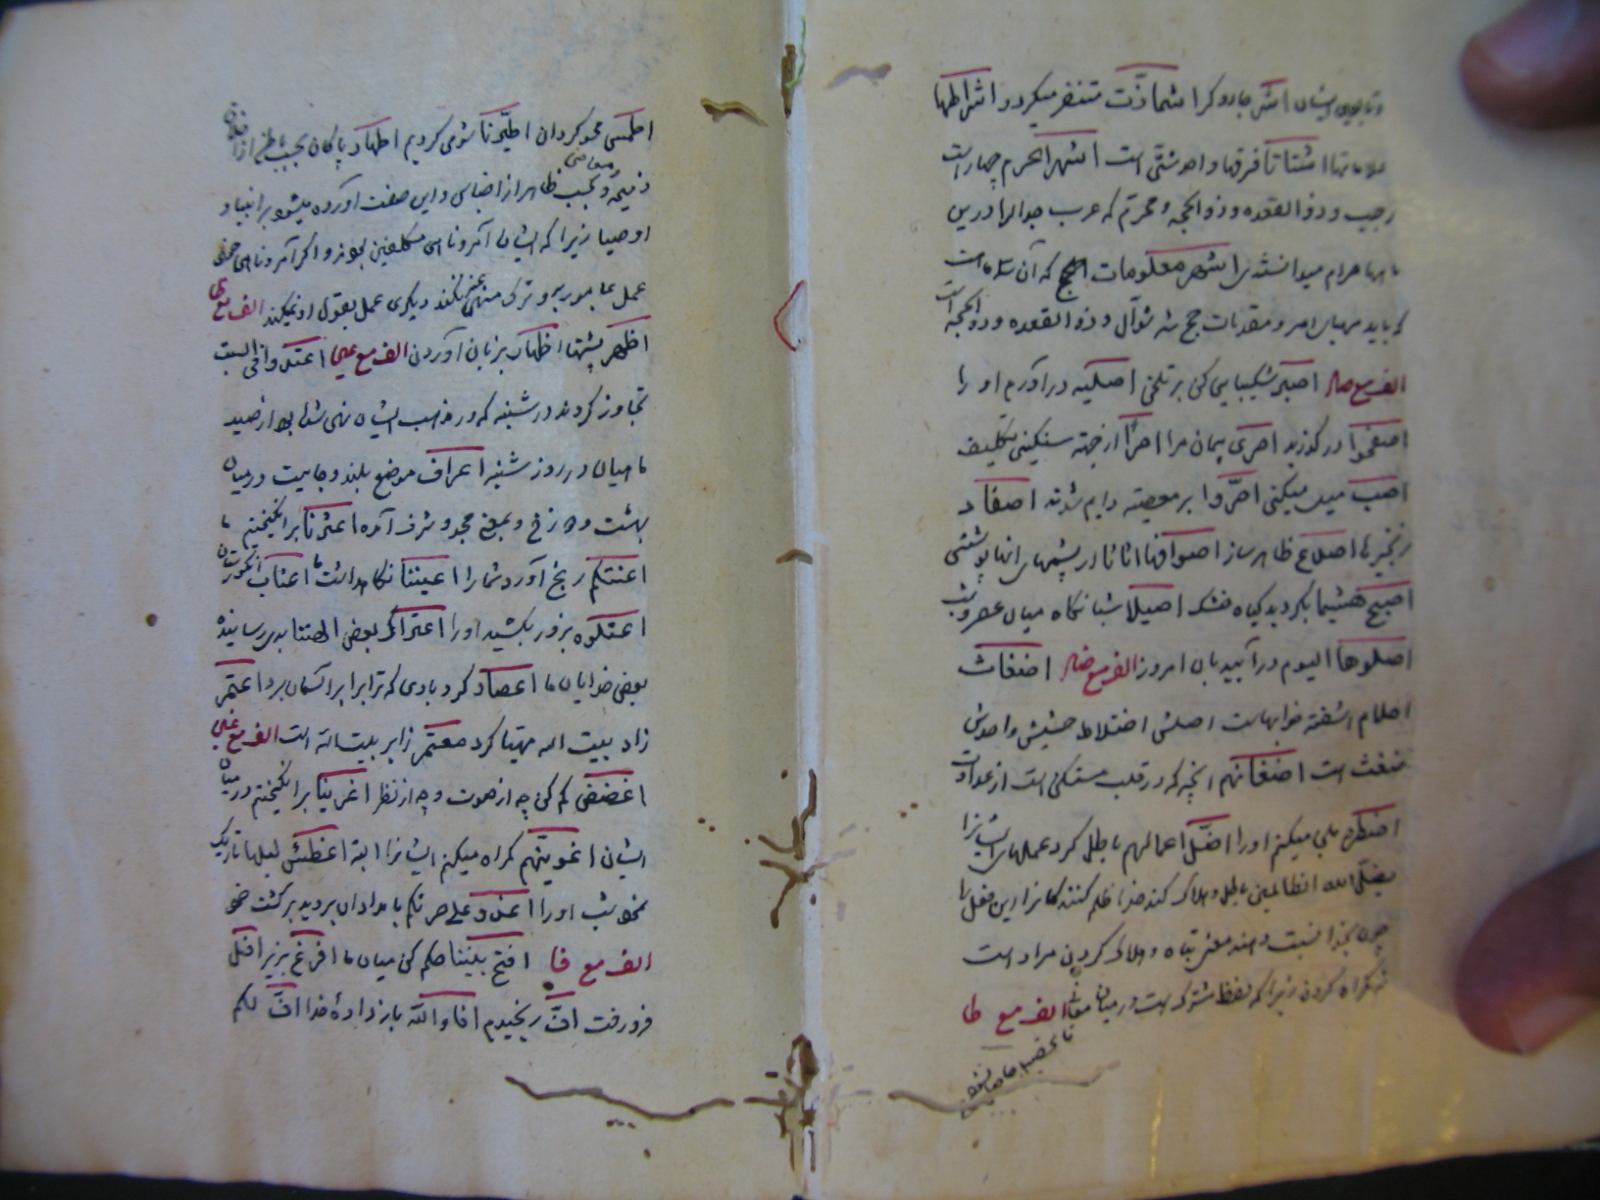 اشمأزت متنفر میکردد اشراطها
اشتاتا فرقها واحد شتّی است اشهر الحرم چهار است
رجب و ذو القعده و ذو الحجه و محرّم که عرب جدال را درین
ماهها حرام میدانستند اشهر معلومات الحج که آن سه ماه است
که باید مهیای امر و مقدمات حج شد شوّال و ذو القعده و ذو الحجه است
الف مع صاد اصبر شکیبایی کن بر تلخی اصلیه درآورم او را
اصفحوا درکذرید اصری پیمان مرا اصرا از جهته سنکینی تکلیف
اصب میل میکنی اصرّوا بر معصیته دایم شدند اصفاد
زنجیرها اصدع ظاهر ساز اصوافها اثاثا از پشمهای آنها پوششی
اصبح هشیما بکردید کیاه خشک اصیلا شبانکاه میان عصر و شب
اصلوها الیوم درآیید بآن امروز الف مع ضاد اضغاث
احلام آشفته خوابهاست اصلش اختلاط حشیش واحدش
ضغث است اضغانهم آنچه که در قلب متمکن است از عداوت
اضطره ملجی میکنم او را اضلّ اعمالهم باطل کرد عملهای ایشانرا
یضلّ الله الظالمین باطل و هلاک کند خدا ظلم کننده کانرا این فعل را
چون بخدا نسبت دهند معنی تباه و هلاک کردن مراد است
نه کمراه کردن زیرا که لفظ مشترک است در میان معنی الف مع طا
اطمس محو کردان اطیّرنا شومی کردیم اطهار پاکان بحسب باطن از اخلاق
ذمیمه و بحسب ظاهر از معاصی و این صفت آورده میشود بر انبیا و
اوصیا زیرا که ایشان آمر و ناهی مکلفین بودند و اکر آمر و ناهی خود
عمل بمأمور به و ترک منهی عنه نکند دیکری عمل بقول او نمیکند الف مع ظا
اظهر پشتها اظهار بزبان آوردن الف مع عین اعتدوا فی السبت
تجاوز کردند در شنبه که در مذهب ایشان نهی شده بود از صید
ماهیان در روز شنبه اعراف موضع بلند و جاییست در میان
بهشت و دوزخ و بمعنی مجد و شرف آمده اعثرنا برانکیختیم ما
اعنتکم رنج آورد شما را اعیننا نکاهداشت ما اعناب انکورستان
اعتلوه بزور بکشید او را اعتراک بعض الهتنا بدی رسانیده
بعض خدایان ما اعصار کردبادی که ترابرا بر آسمان برد اعتمر
زاد بیت الله مهیا کرد معتمر زایر بیت الله است الف مع غین
اغضض کم کن چه از صوت و چه از نظر اغرینا برانکیختیم در میان
ایشان اغوینّهم کمراه میکنم ایشانرا البته اغطش لیلها تاریک
نمود شب او را اغدوا علی حرثکم بامدادان بروید بر کشت خود
الف مع فا افتح بیننا حکم کن میان ما افرغ بریز افل
فرو رفت افّ رنجیدم افاء الله باز داده خدا افّ لکم